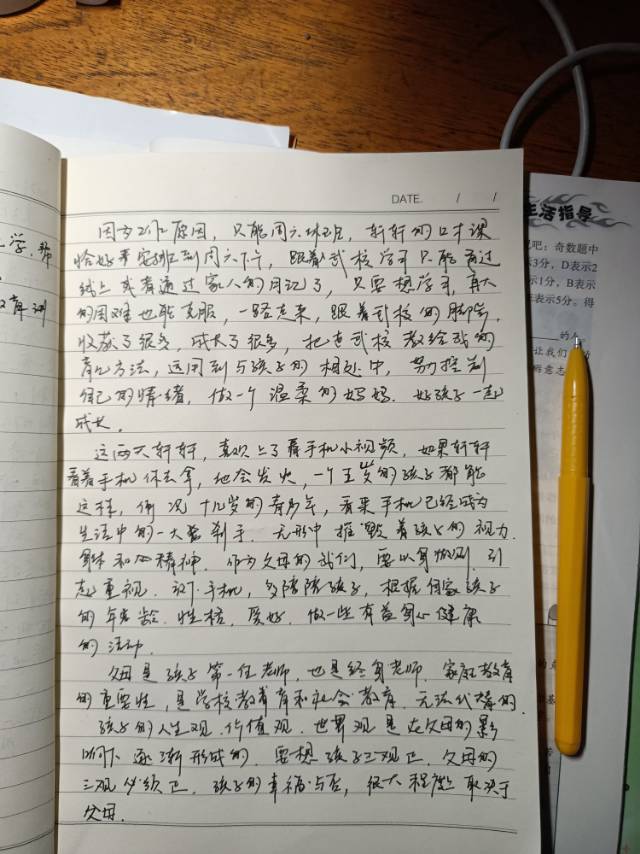 DATE. / /
因为工作原因，只能周六班班，轩轩的口才课
恰好安排到周六下午，跟着武校学习只能通过
线上或者通过家人的日记了，只要想学习，再大
的困难也能克服，一路走来，跟着武校的脚步，
收获了很多，成长了很多，把武校教给我的
育儿方法，运用到与孩子的相处中，努力控制
自己的情绪，做一个温柔的妈妈．好孩子一起
成长．
这两天轩轩，喜欢上了看手机小视频，如果轩轩
看着手机你去拿，他会发火，一个五岁的孩子都能
这样，何况十几岁的青少年，看来手机已经成为
生活中的一大杀手．无形中摧毁着孩子的视力．
身体和精神．作为父母的我们，要以身做则．引
起重视．放下手机，多陪陪孩子，根据自家孩子
的年龄．性格．爱好．做一些有益身心健康
的活动．
父母是孩子第一任老师，也是终身老师．家庭教育
的重要性，是学校教育和社会教育．无法代替的．
孩子的人生观．价值观．世界观是在父母的影
响下逐渐形成的．要想孩子三观正．父母的
三观必须正．孩子的幸福与否，很大程度取决于
父母．
学．
生活指导
吧：奇数题中
3分，D表示2
示1分，B表示
表示5分。得
让我们